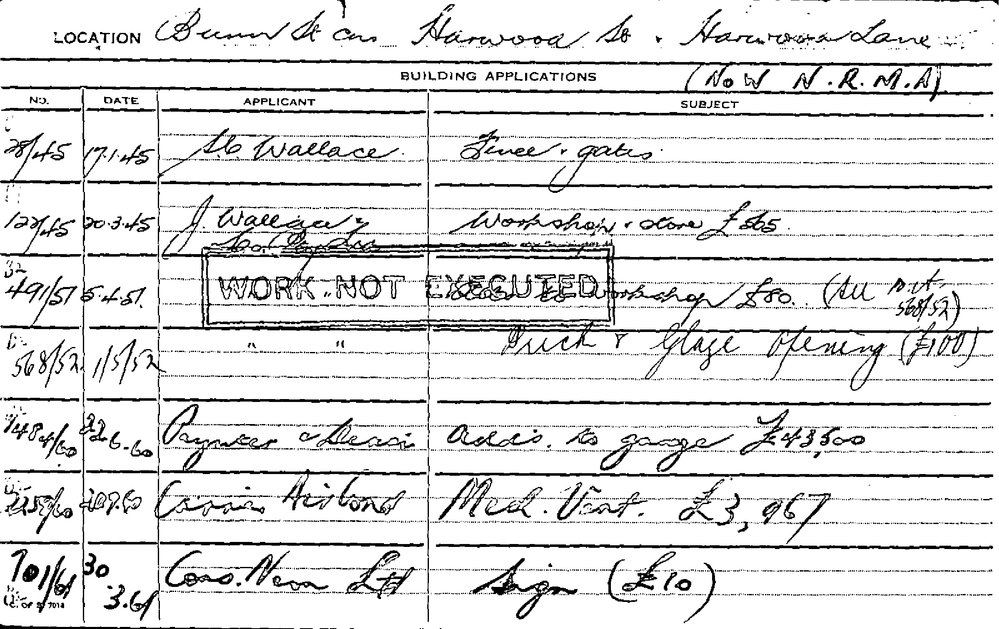 LOCATION Bunn St cnr Harwood St & Harwood Lane
BUILDING APPLICATIONS (NOW N.R.M.A)
NO. DATE APPLICANT SUBJECT
28/45 17.1.45 Wallace Fence & gates
122/45 20.3.45 J. Wallace Workshop & store £565
WORK NOT EXECUTED
491/51 5.4.51 workshop £80. (See 568/52)
568/52 1/5/52 " " Brick & Glaze Opening (£100)
1484/60 22.6.60 Paynter & Add's. to garage £43,500
60 Carrier Mech. Vent. £3,967
701/61 30 3.61 Cons. Neon Ltd Sign (£10)